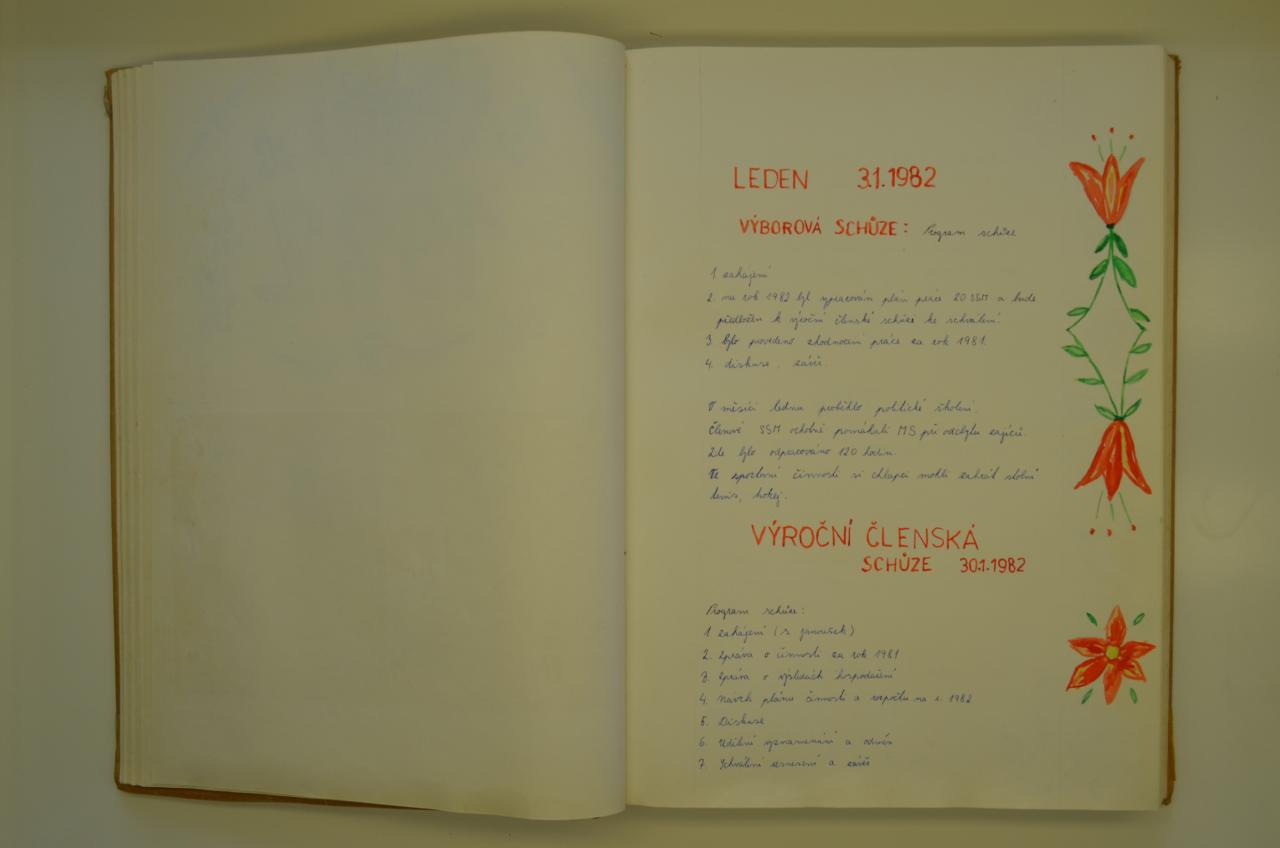 LEDEN 3.1.1982
VÝBOROVÁ SCHŮZE: Program schůze
1. zahájení
2. na rok 1982 byl vypracován plán práce ZO SSM a bude
předložen k výroční členské schůzi ke schválení.
3. bylo provedeno zhodnocení práce za rok 1981.
4. diskuse, závěr.
V měsíci lednu proběhlo politické školení.
Členové SSM ochotně pomáhali MS při odchytu zajíců.
Zde bylo odpracováno 120 hodin.
Ve sportovní činnosti si chlapci mohli zahrát stolní
tenis, hokej.
VÝROČNÍ ČLENSKÁ
SCHŮZE 30.1.1982
Program schůze:
1 zahájení (s. Janoušek)
2. Zpráva o činnosti za rok 1981
3. Zpráva o výsledcích hospodaření
4. Návrh plánu činnosti a rozpočtu na r. 1982
5. Diskuse
6. Udělení vyznamenání a odměn
7. Schválení usnesení a závěr